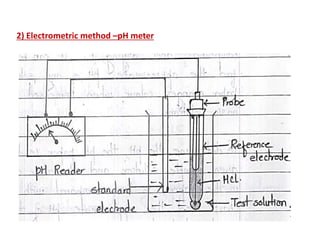 2) Electrometric method –pH meter
Probe
Reference
electrode
pH Reader
HCl.
standard
electrode
Test solution.